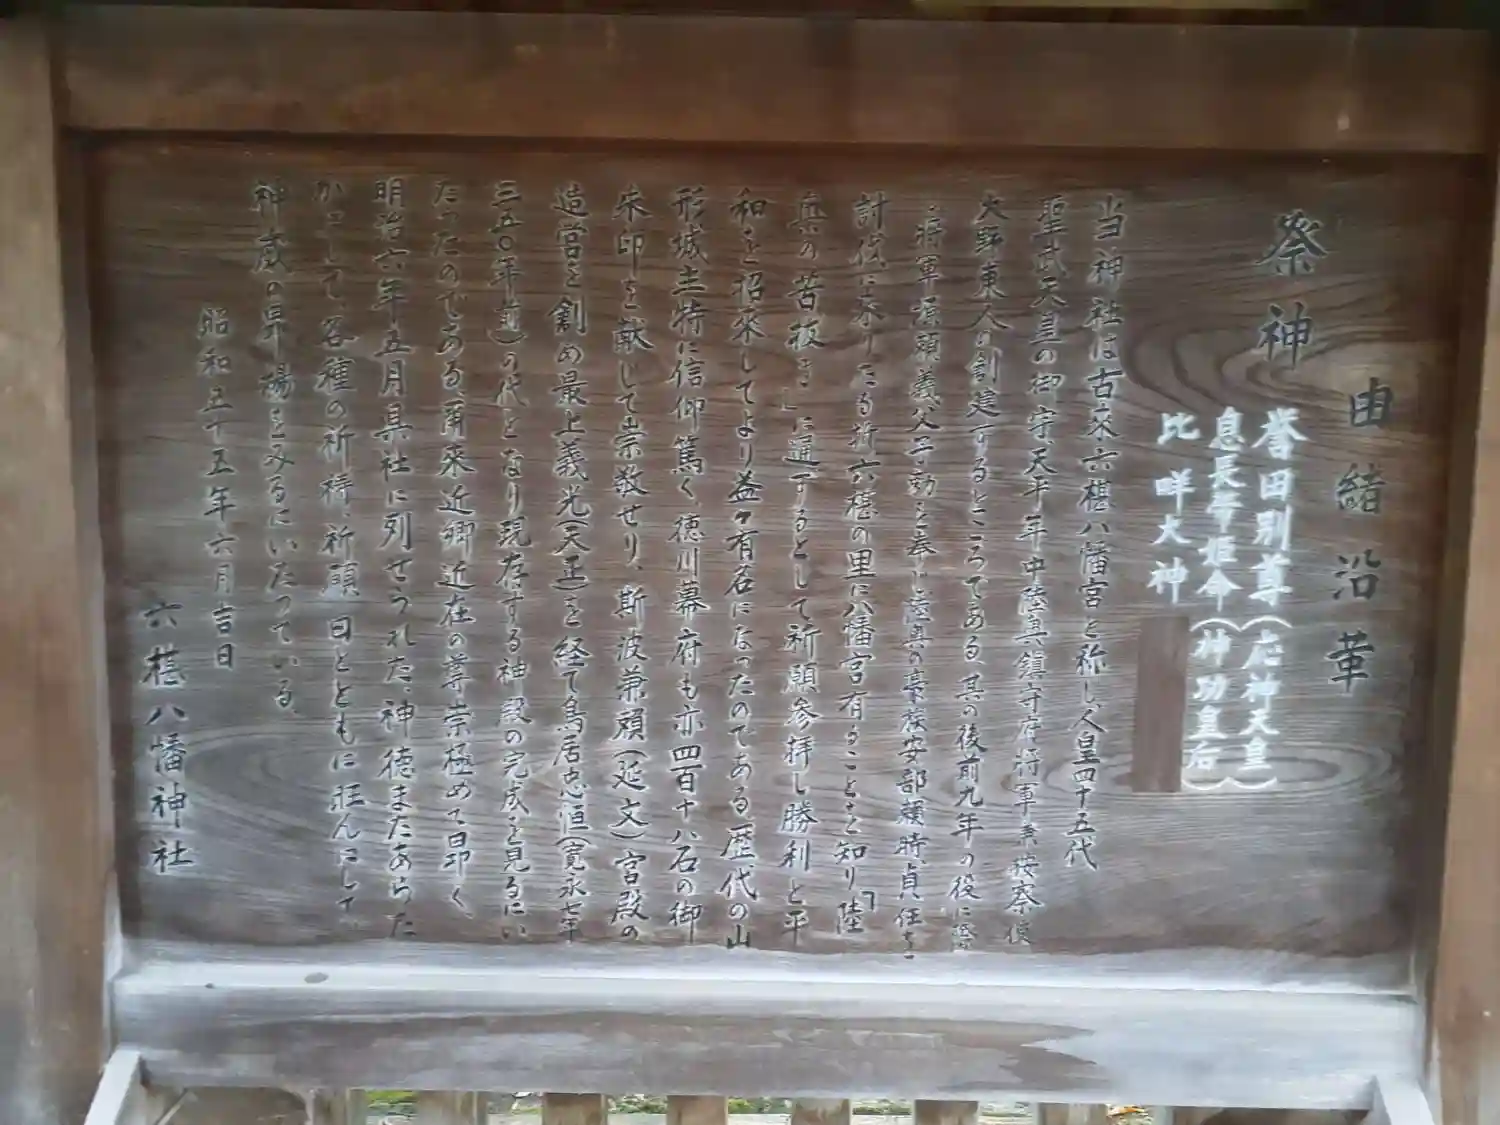 由緒沿革
祭神
誉田別尊(応神天皇)
息長帯姫命(神功皇后)
比咩大神
当神社は古来六椹八幡宮と称し人皇四十五代
聖武天皇の御宇、天平年中陸奥鎮守府将軍兼按察使
大野東人の創建するところである、其の後前九年の役に
将軍源頼義父子勅を奉じ陸奥の豪族安部頼時、貞任を
討伐に来りたる折六椹の里に八幡宮有ることを知り「陸
奥の苦抜き」に通ずるとして祈願参拝し勝利と平
和を招来してより益々有名になったのである歴代の山
形城主特に信仰篤く徳川幕府も亦四百十八石の御
朱印を献じて崇敬せり、斯波兼頼(延文)宮殿の
造営を創め最上義光(天正)を経て鳥居忠恒(寛永七年
三五〇年前)の代となり現存する神殿の完成を見るにい
たったのである、爾来近郷近在の尊崇極めて昂く、
明治六年五月県社に列せられた、神徳まことにあらた
かにして各種の祈祷祈願日とともに旺んにして
神威の昂揚をみるにいたっている、
昭和五十五年六月吉日
六椹八幡神社